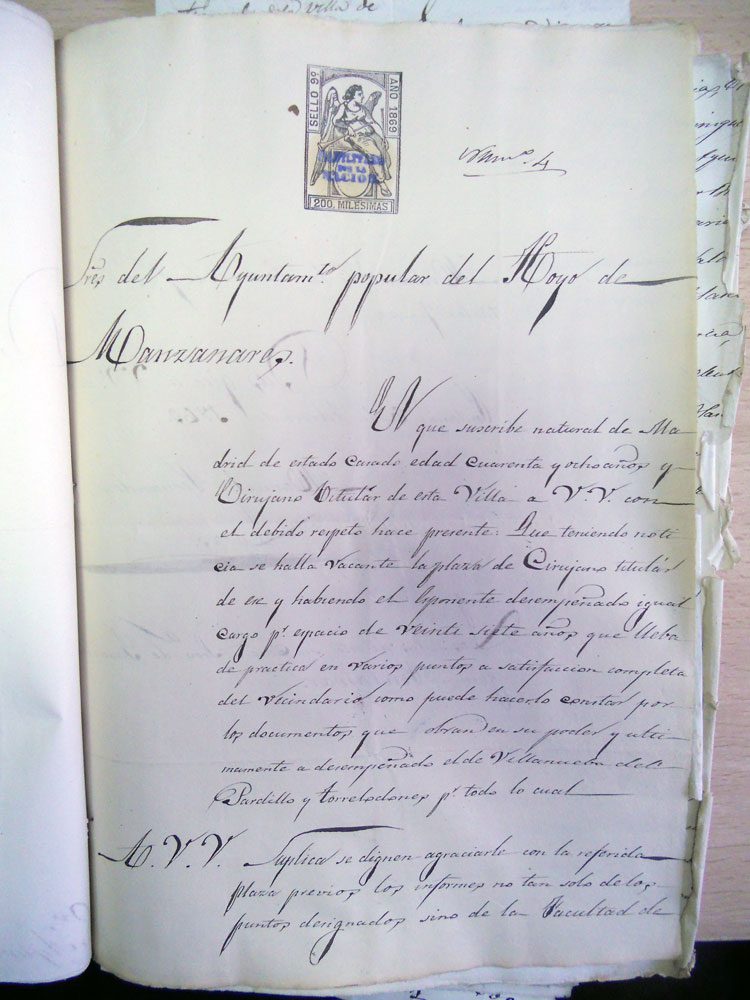 SELLO 9º AÑO 1869
HABILITADO
POR LA
NACION
200 MILESIMAS
Numº 4
Sres del Ayuntamto popular del Hoyo de
Manzanares.
El que suscribe natural de Ma-
drid de estado casado edad cuarenta y ocho años y
Cirujano titular de esta Villa a V.V. con
el debido respeto hace presente: Que teniendo noti
cia se halla vacante la plaza de Cirujano titular
de esa y habiendo el Esponente desempeñado igual
cargo pr. espacio de veinte siete años que lleba
de practica en varios puntos a satisfaccion completa
del vecindario como puede hacerlo constar por
los documentos que obran en su poder y ulti-
mamente a desempeñado el de Villanueba del
Pardillo y torrelodones pr. todo lo cual
A. V. V. Suplica se dignen agraciarle con la referida
plaza previos los informes no tan solo de los
puntos designados sino de la Facultad de